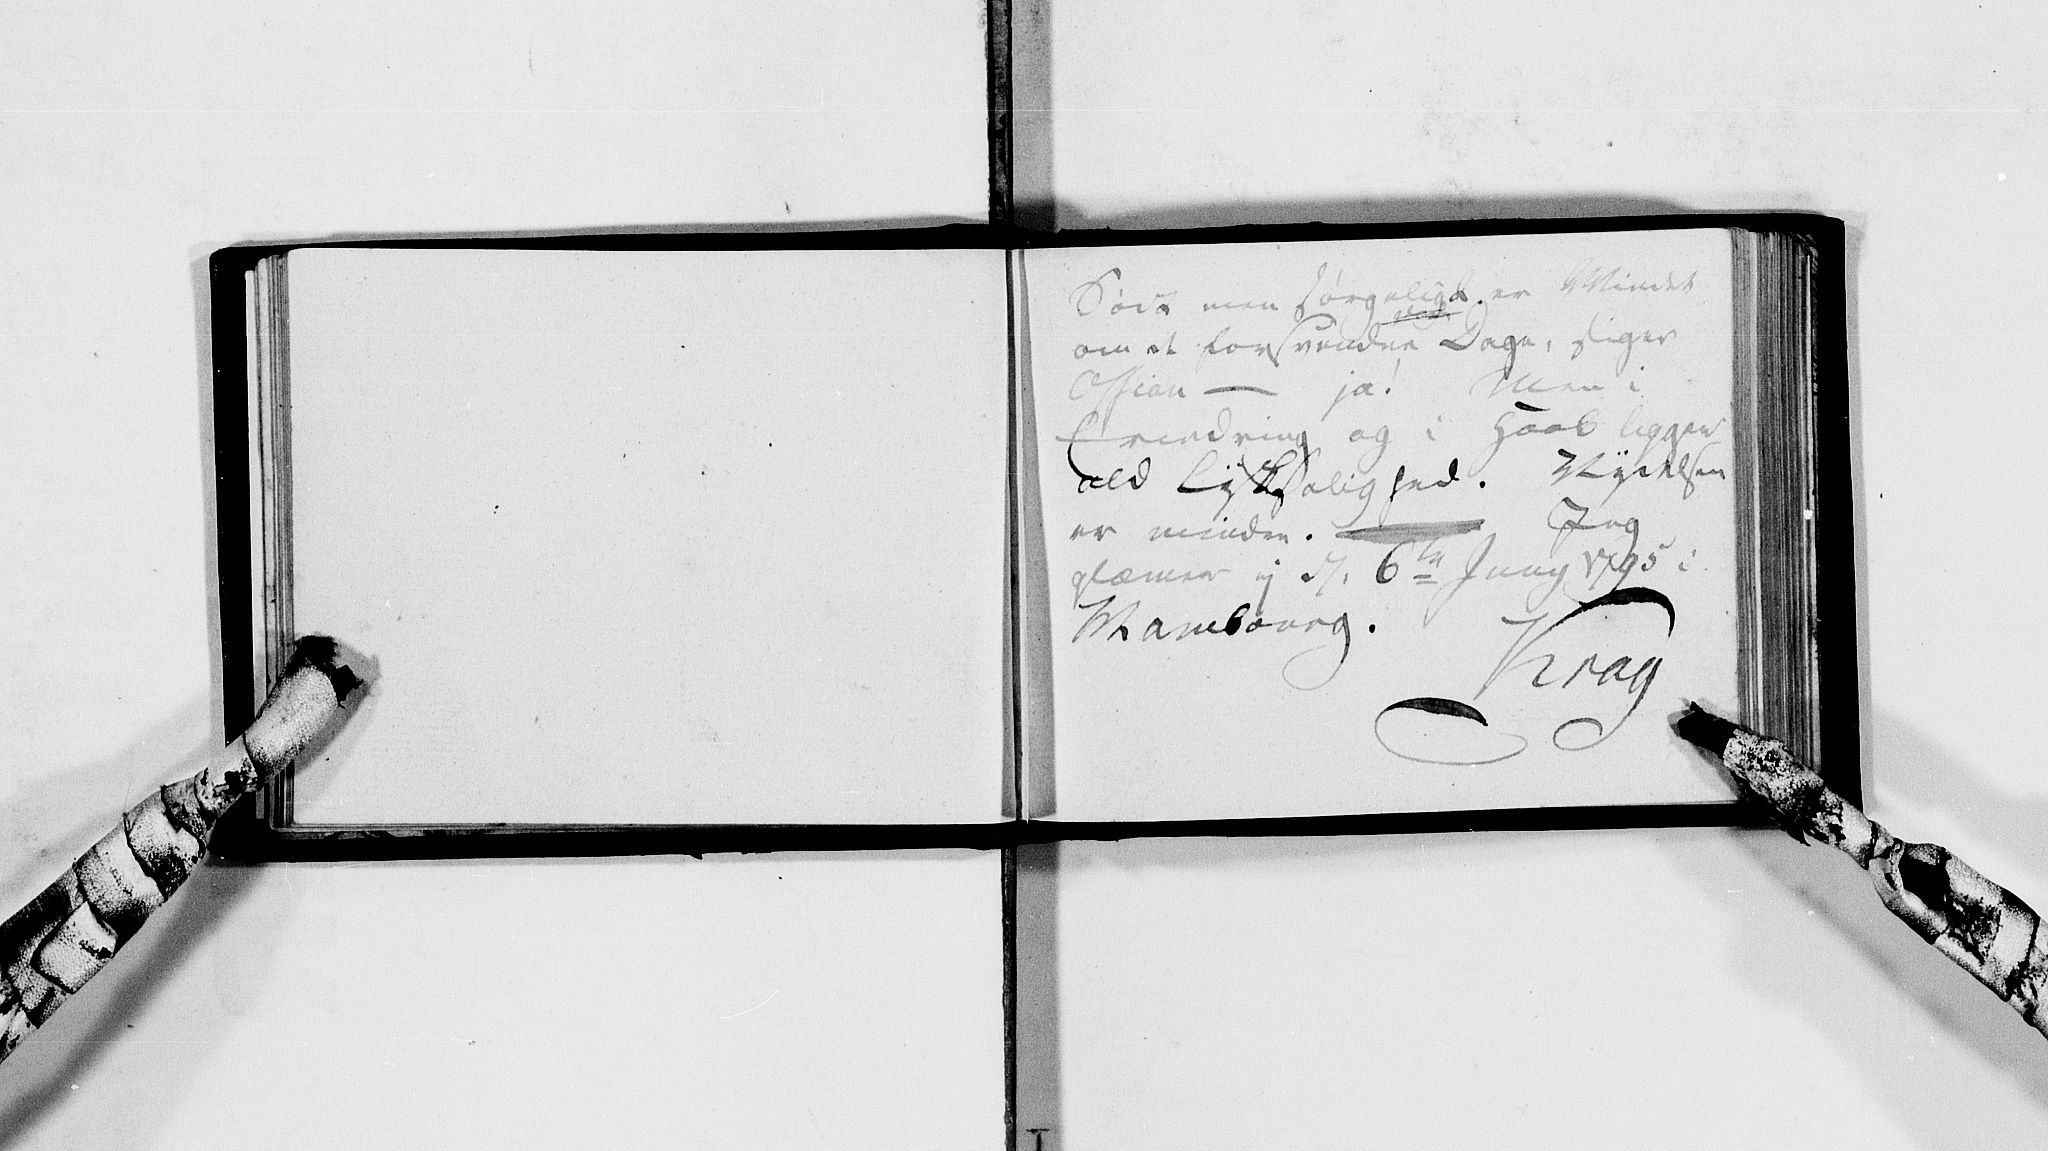 Sødt men sørgeligt er Mindet
om de forsvundne Dage, siger
Ossian — ja! Men i
Erindring og i Haab ligger
ald Lyksalighed. Nydelsen
er mindre. — Jeg
glemmer ej d. 6te Juny 1795 i
Krag